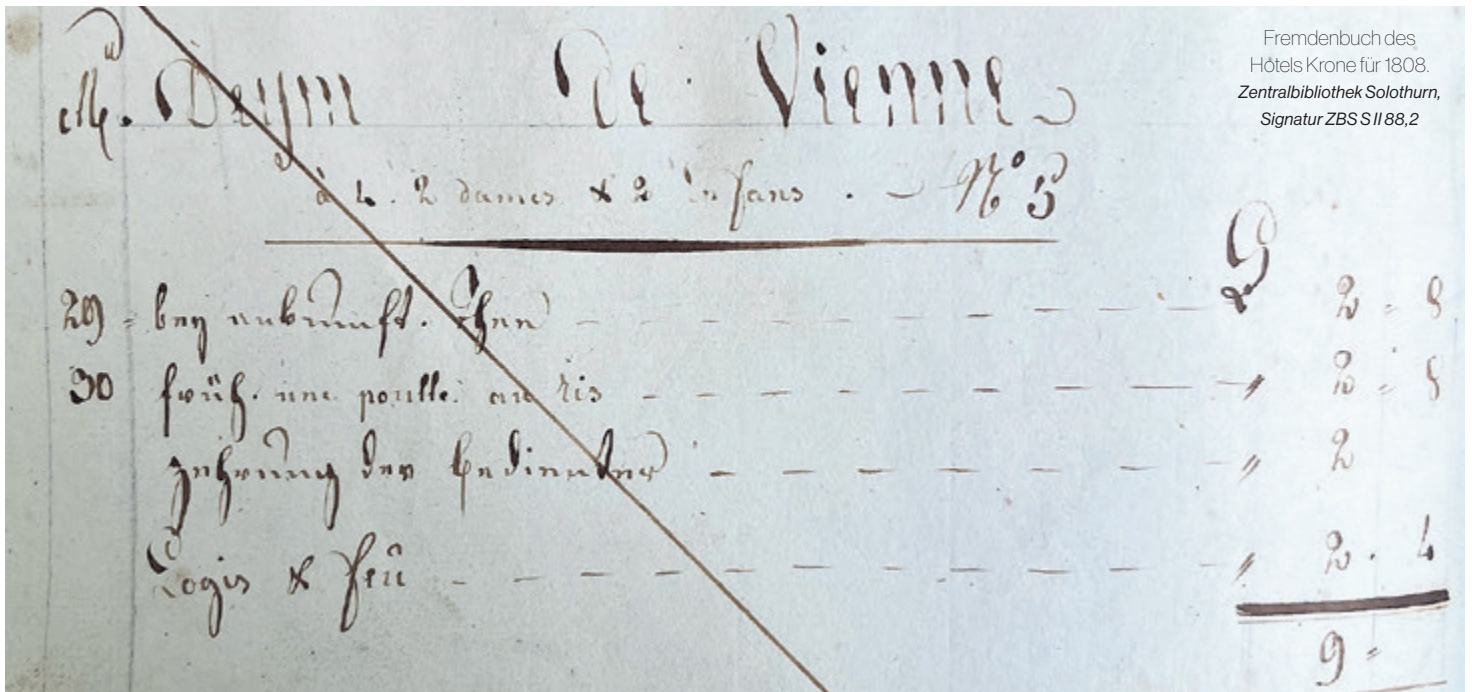 Fremdenbuch des
Hôtels Krone für 1808.
Zentralbibliothek Solothurn,
Signatur ZBS S II 88,2
M. Deym de Vienne
à 4. 2 dames & 2 Enfans . – N° 5
29 = bey ankunft. Thee – – – – – – – – – 2 = 8
30 früh. une poulle. au ris – – – – – – – – – " 2 = 8
zehrung der bedienter – – – – – – – " 2
Logis & feu – – – – – – – – – – – " 2 . 4
9 =